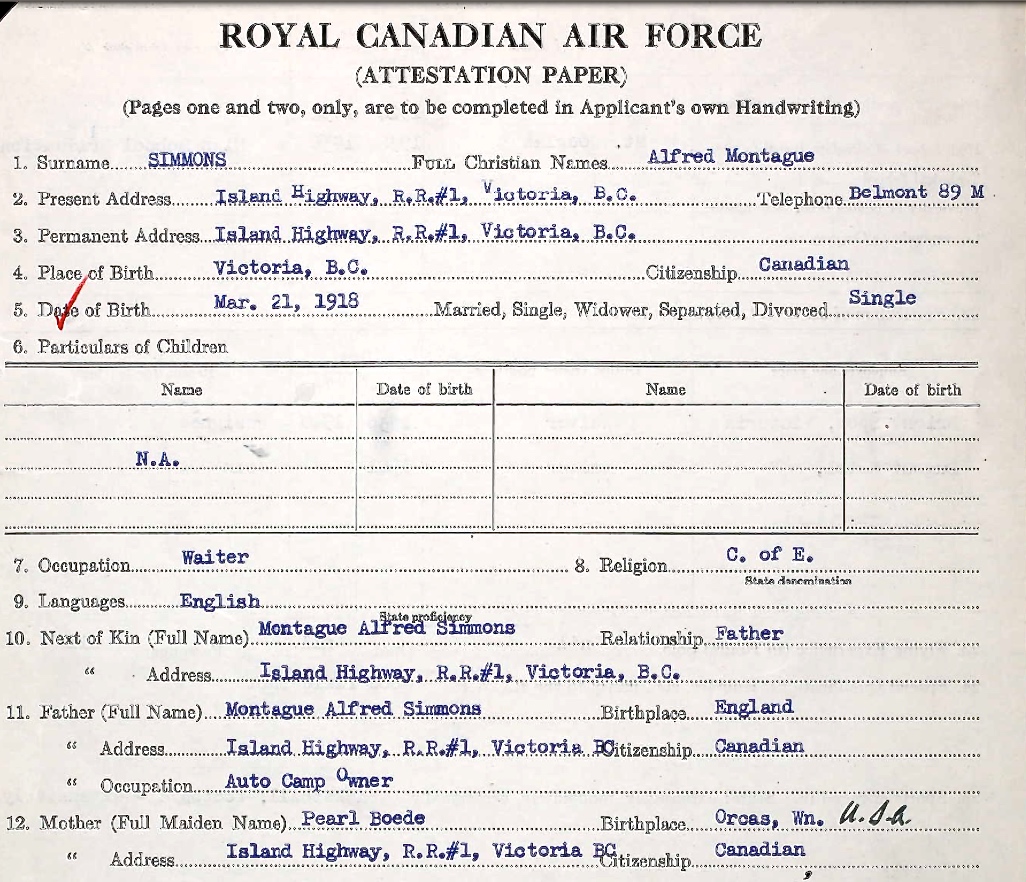 ROYAL CANADIAN AIR FORCE
(ATTESTATION PAPER)
(Pages one and two, only, are to be completed in Applicant's own Handwriting)
1. Surname SIMMONS FULL Christian Names Alfred Montague
2. Present Address Island Highway, R.R.#1, Victoria, B.C. Telephone Belmont 89 M
3. Permanent Address Island Highway, R.R.#1, Victoria, B.C.
4. Place of Birth Victoria, B.C. Citizenship Canadian
5. Date of Birth Mar. 21, 1918 Married, Single, Widower, Separated, Divorced Single
6. Particulars of Children
Name Date of birth Name Date of birth
N.A.
7. Occupation Waiter 8. Religion C. of E.
State denomination
9. Languages English
State proficiency
10. Next of Kin (Full Name) Montague Alfred Simmons Relationship Father
" Address Island Highway, R.R.#1, Victoria, B.C.
11. Father (Full Name) Montague Alfred Simmons Birthplace England
" Address Island Highway, R.R.#1, Victoria BC Citizenship Canadian
" Occupation Auto Camp Owner
12. Mother (Full Maiden Name) Pearl Boede Birthplace Orcas, Wn. U.S.A.
" Address Island Highway, R.R.#1, Victoria BC Citizenship Canadian